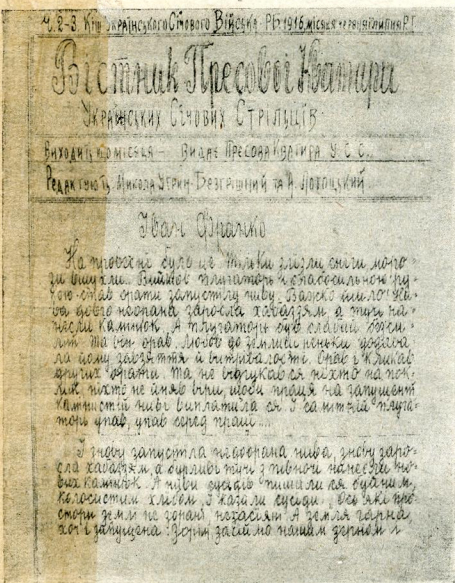 Ч. 2-3. Кіш Українського Січового Війська. Рік 1916, місяця червня і липня Р. І.
Вістник Пресової Кватири
Українських Січових Стрільців
Виходить що місяця — Видає Пресова Кватира У. С. С.
Редагують: Микола Угрин-Безгрішний та А. Лотоцький
Іван Франко
На провесні було це. Тільки злізли сніги моро-
зи вщухли. Вийшов плугатор і опасосильною ру-
кою став орати запустілу ниву. Важко йшло! Ни-
ва добго неорана заросла хабаззям, а тучі на-
несли каміння. А плугатор був слабий
Та він орав. Любов до землиці неньки додава-
ла йому завзяття й витривалости. Орав і кликав
других орати. Та не відгукався ніхто на пок-
лик, ніхто не йняв віри, щоби праця на запущеній
камянистій ниві виплатила ся. І самітній плуга-
тор упав, упав серед праці....
І знову запустла недоорана нива, знову заро-
сла хабаззям, а бурливі тучі з півночі нанесли но-
вих камінюк. А ниви сусідів пишили ся буйним,
колосистим хлібом. І казали сусіди: ось які про-
стори землі не зорані, незасіяні! А земля гарна
хоч і запущена! Зорім засіймо нашим зерном і